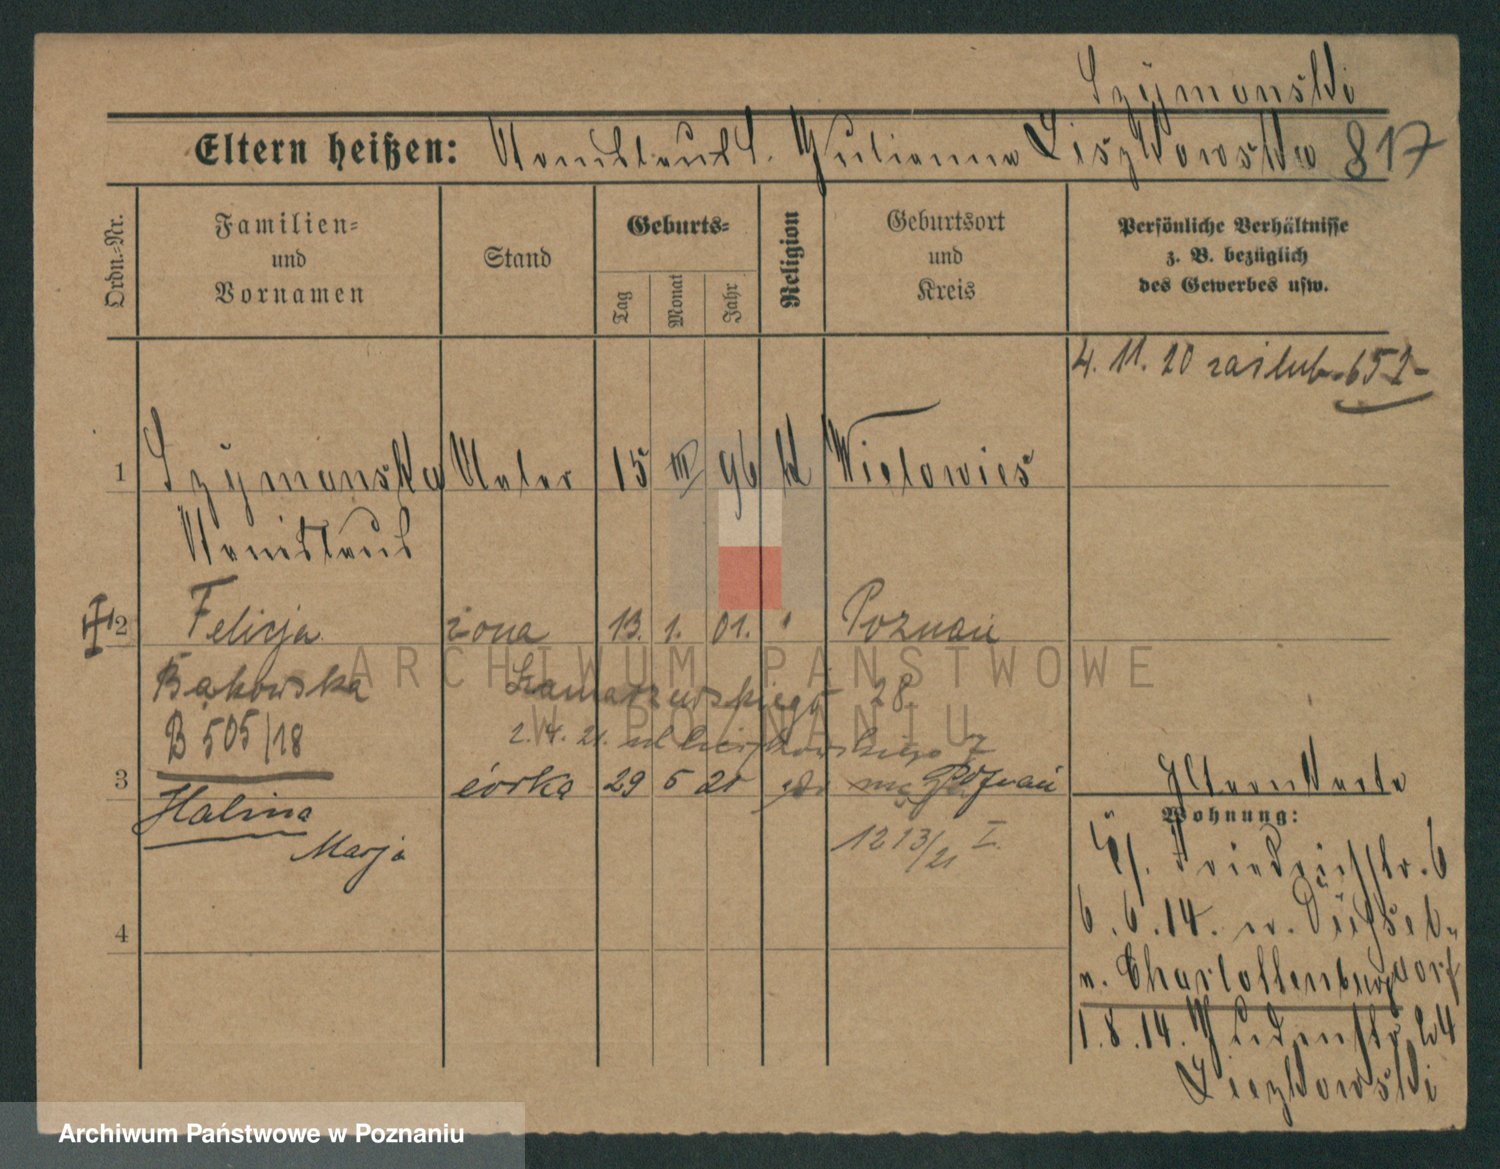 Szymanski
Eltern heißen: Stanislaus u. Julianna Liszkowska 817
Ordn.-Nr.
Familien-
und
Vornamen
Stand
Geburts-
Tag
Monat
Jahr
Religion
Geburtsort
und
Kreis
Persönliche Verhältnisse
z. B. bezüglich
des Gewerbes usw.
4. 11. 20 zaślub. 652
1 Szymanski Maler 15 III 96 k Wielowies
Stanislaus
2 Felicja żona 13. 1. 01. " Poznań
Bąkowska Szamarzewskiego 28
B 505/18 2. 4. 21. 7
3 córka 29 5 21 Poznań
Halina
Marja
1213/21 I.
4
Elternkarte
Wohnung:
Friedrichstr. 6
6. 6. 14. n. Düssel-
dorf
n. Charlottenburg
1. 8. 14. 24
Liszkowski
ARCHIWUM PAŃSTWOWE
W POZNANIU
Archiwum Państwowe w Poznaniu